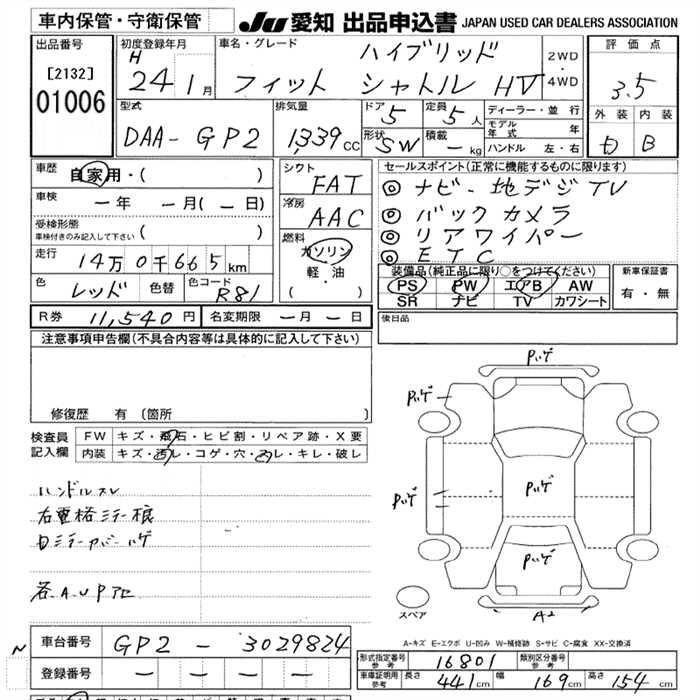 車内保管・守衛保管
JU 愛知 出品申込書 JAPAN USED CAR DEALERS ASSOCIATION
出品番号
[2132]
01006
初度登録年月
H
24 1月
車名・グレード
ハイブリッド
フィット シャトル HV
2WD
・
4WD
評価点
3.5
外装 内装
B
型式
DAA-GP2
排気量
1,339CC
ドア
5
定員
5人
形状
SW
積載
－kg
ディーラー・並行
モデル年式 年
ハンドル 左・右
車歴
自家用・( )
車検
－年 －月(－日)
受検形態
車検付きのみ記入して下さい ( )
走行
14万0千665km
色
レッド
色替
色コード
R81
シフト
FAT
冷房
AAC
燃料
ガソリン
軽・油
( ・ )
セールスポイント(正常に機能するものに限ります)
◎ナビ・地デジTV
◎バックカメラ
◎リアワイパー
◎ETC
装備品(純正品に限り○をつけてください)
PS PW エアB AW
SR ナビ TV カワシート
新車保証書
有・無
R券 11,540円
名変期限 －月－日
後日品
注意事項申告欄(不具合内容等は具体的に記入して下さい)
修復歴 有 (箇所 )
検査員
記入欄
FW キズ・飛石・ヒビ割・リペア跡・X要
内装 キズ・汚レ・コゲ・穴・スレ・キレ・破レ
ハンドルスレ
右電格ミラー根
各A.U.P
Pハゲ
Pハゲ
Pハゲ
Pハゲ
Pハゲ
スペア
A2
A-キズ E-エクボ U-凹み W-補修跡 S-サビ C-腐食 XX-交換済
N
車台番号 GP2－3029824
登録番号 － － － －
形式指定番号
参考
16801
類別区分番号
参考
車庫証明用
参考
長さ 441cm 幅 169cm 高さ 154cm